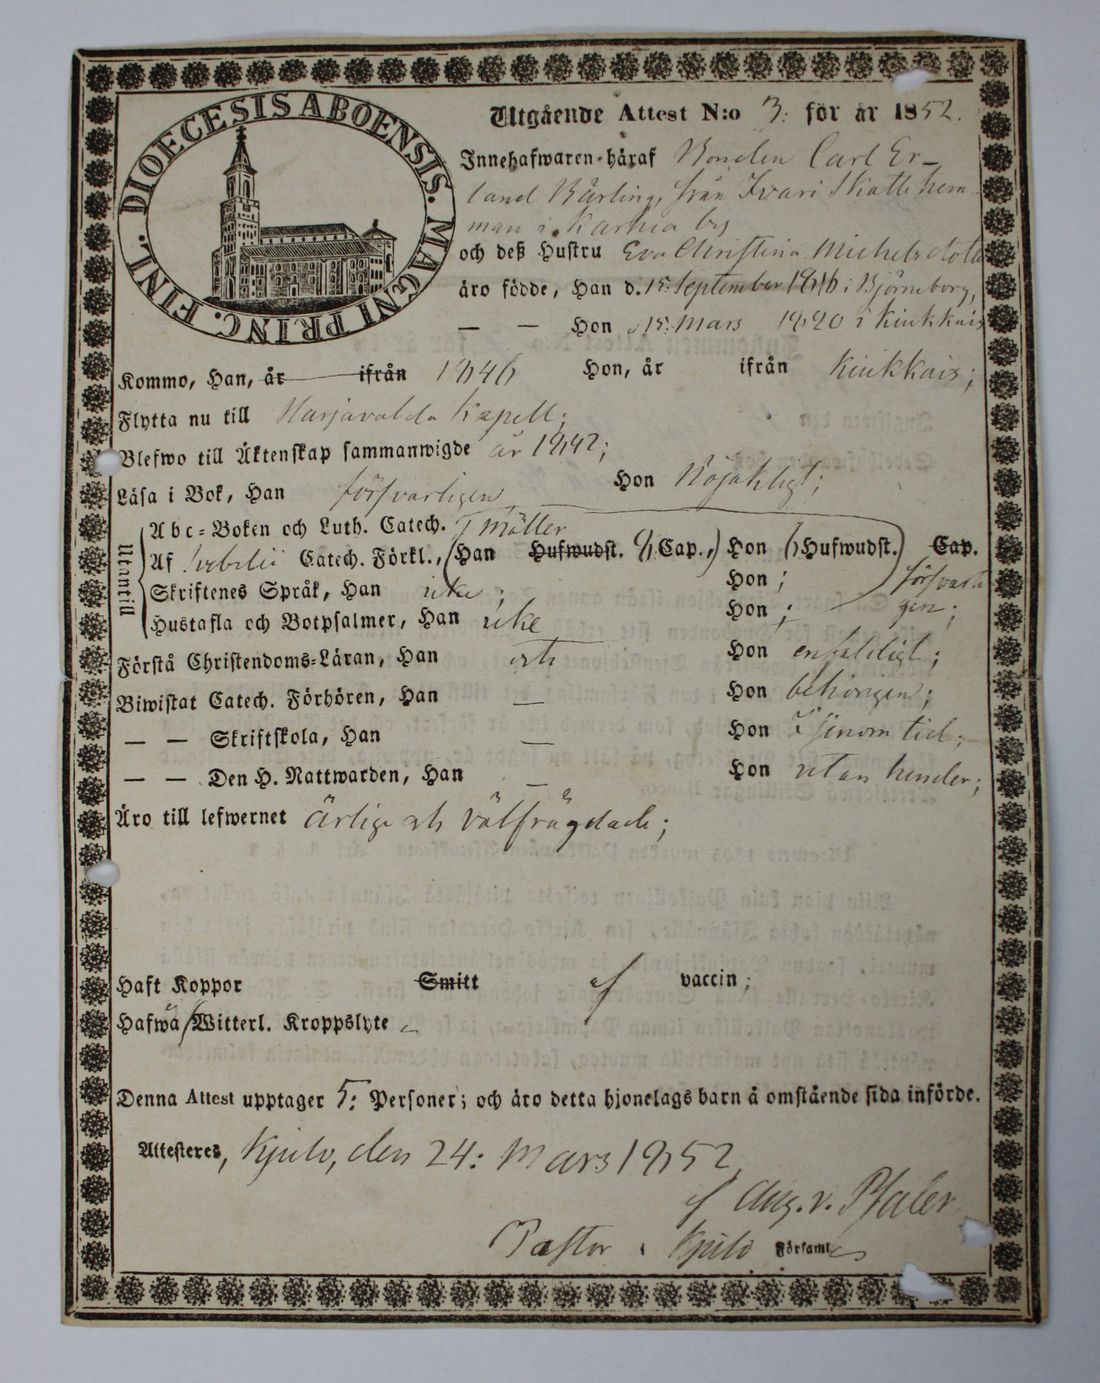 DIOECESIS ABOENSIS. MAGNI PRINC. FINL.
Utgående Attest N:o 3: för år 1852.
Innehafwaren häraf Bonden Carl Er-
land Bärling, från Iwari Skattehem-
man i Karhia by
och deß Hustru Eva Christina Michelsdotter
äro födde, Han d. 15: September 1816 i Björneborg,
— — Hon d 15: Mars 1820 i Kiukkais
Kommo, Han, år ifrån 1846 Hon, år ifrån Kiukkais;
Flytta nu till Harjavalda Kapell;
Blefwo till Äktenskap sammanwigde år 1842;
Läsa i Bok, Han försvarligen Hon Nöjaktigt;
Utantill
Abc-Boken och Luth. Catech.
Af Svebelii Catech. Förkl., (Han Hufwudst. Cap.,) Hon (Hufwudst.) Cap.
Skriftenes Språk, Han icke; Hon; försvarli
Hustafla och Botpsalmer, Han icke Hon; gen;
Förstå Christendoms-Läran, Han och Hon enfaldigt;
Biwistat Catech. Förhören, Han — Hon behörigen;
— — Skriftskola, Han — Hon i sinom tid;
— — Den H. Nattwarden, Han — Hon utan hinder;
Äro till lefwernet ärlige och välfrägdade;
Haft Koppor Smitt af vaccin;
Hafwa Witterl. Kroppslyte —
Denna Attest upptager 5: Personer; och äro detta hjonelags barn å omstående sida införde.
Attesteras, Kjulo, den 24: Mars 1852
af Aug. v. Pfaler
Pastor i Kjulo Församl